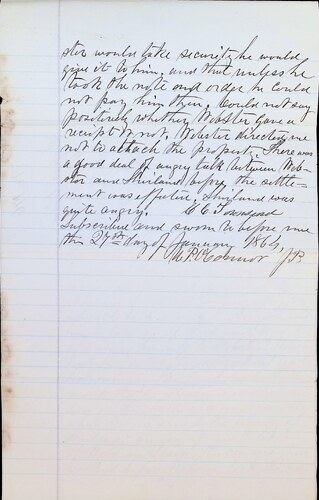 ster would take security he would
give it to him, and that unless he
took the note and order he could
not pay him then. Could not say
positively whether Webster gave a
receipt or not. Webster directed me
not to attach the property. There was
a good deal of angry talk between Web-
ster and Shirland before the settle-
ment was effected, Shirland was
quite angry. C C Townsend
Subscribed and sworn to before me
this 27th day of January 1864,
M P O'Connor JP